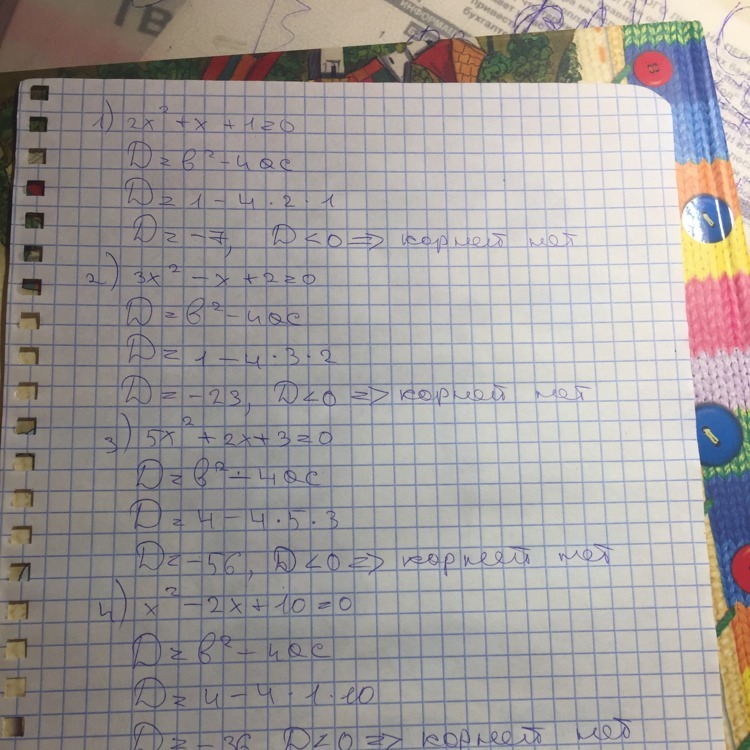 1) 2x² + x + 1 = 0
D = b² - 4ac
D = 1 - 4 · 2 · 1
D = -7, D < 0 => корней нет
2) 3x² - x + 2 = 0
D = b² - 4ac
D = 1 - 4 · 3 · 2
D = -23, D < 0 => корней нет
3) 5x² + 2x + 3 = 0
D = b² - 4ac
D = 4 - 4 · 5 · 3
D = -56, D < 0 => корней нет
4) x² - 2x + 10 = 0
D = b² - 4ac
D = 4 - 4 · 1 · 10
D = -36, D < 0 => корней нет